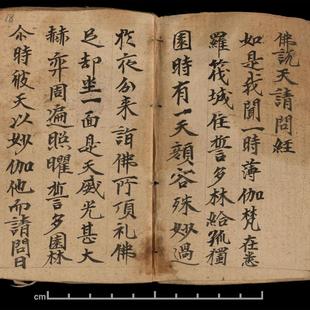 佛說天請問經
如是我聞一時薄伽梵在室
羅筏城住誓多林給孤獨
園時有一天顏容殊妙過
於夜分來詣佛所頂礼佛
足却坐一面是天威光甚大
赫弈周遍照曜誓多園林
尒時彼天以妙伽他而請問曰
18
cm